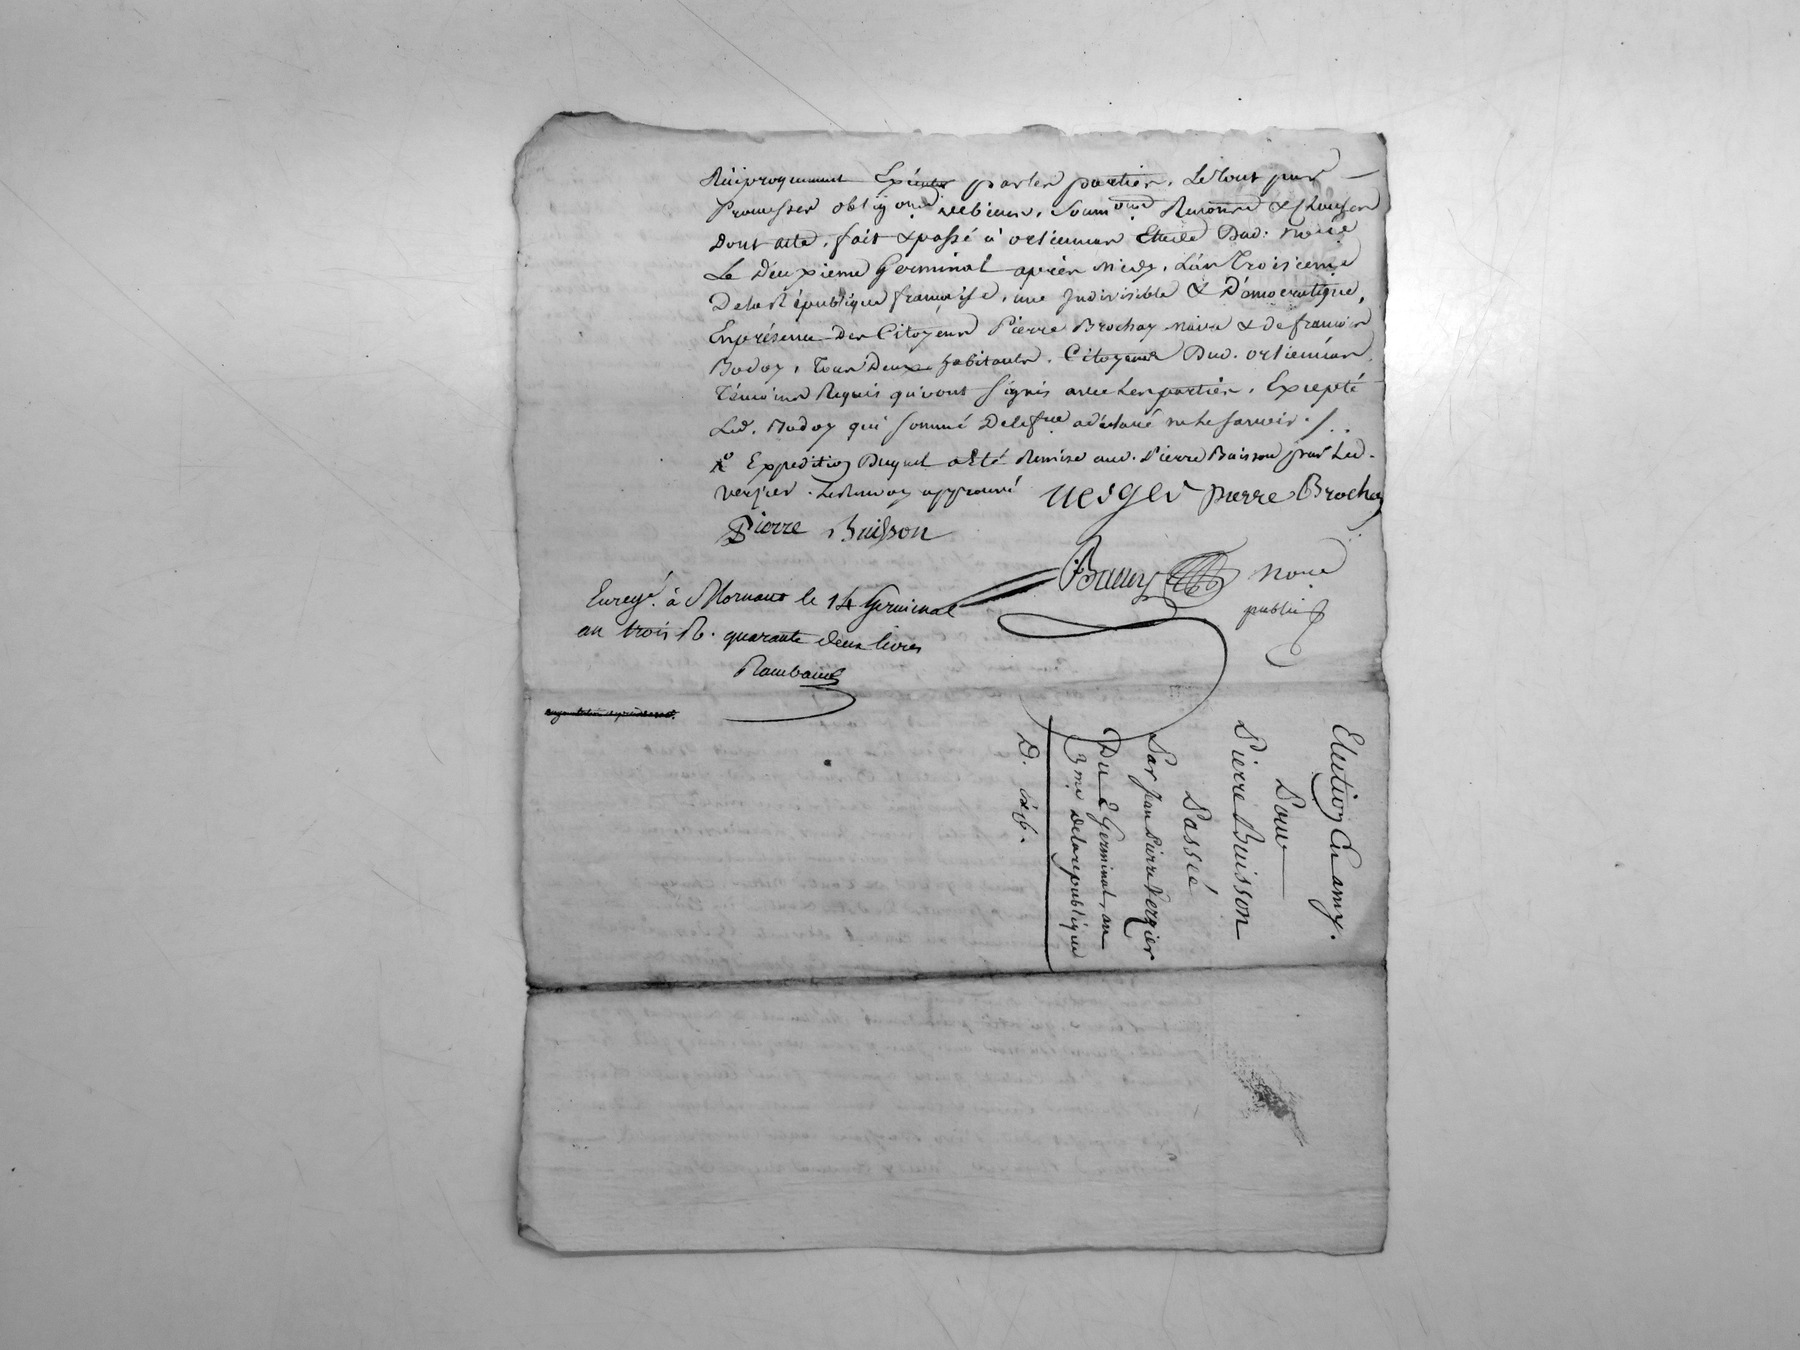 Réciproquement Exécuter par les parties. Le tout par
Promesses oblig.ons des biens, Soum.ons Renon.on & Clauses
Dont acte, fait & passé à orliennas Etude Dud. no.re
Le Deuxieme Germinal après Midy, L'an Troisieme
De la République française, une Indivisible & Démocratique,
En présence Des Citoyens Pierre Brochay maire & de françois
Bodoy, Tous Deux habitants, Citoyens Dud. orliennas,
Témoins Requis qu'vont signés avec Les parties, Excepté
Led. Bodoy qui sommé De le f.re a déclaré ne le savoir ./.
Expedition Duquel a été Remise aud. Pierre Buisson par Led.
Verzier. Le Renvoy approuvé verzier pierre Brochay
Pierre Buisson
Bruny no.re
public
Enregé. à Mornant le 14 Germinal
an trois R. quarante deux livres
Rambaud
Election En amy.
Pour
Pierre Buisson
Passé
Par Jean Pierre Verzier
Du 2 Germinal, an
3me De la republique